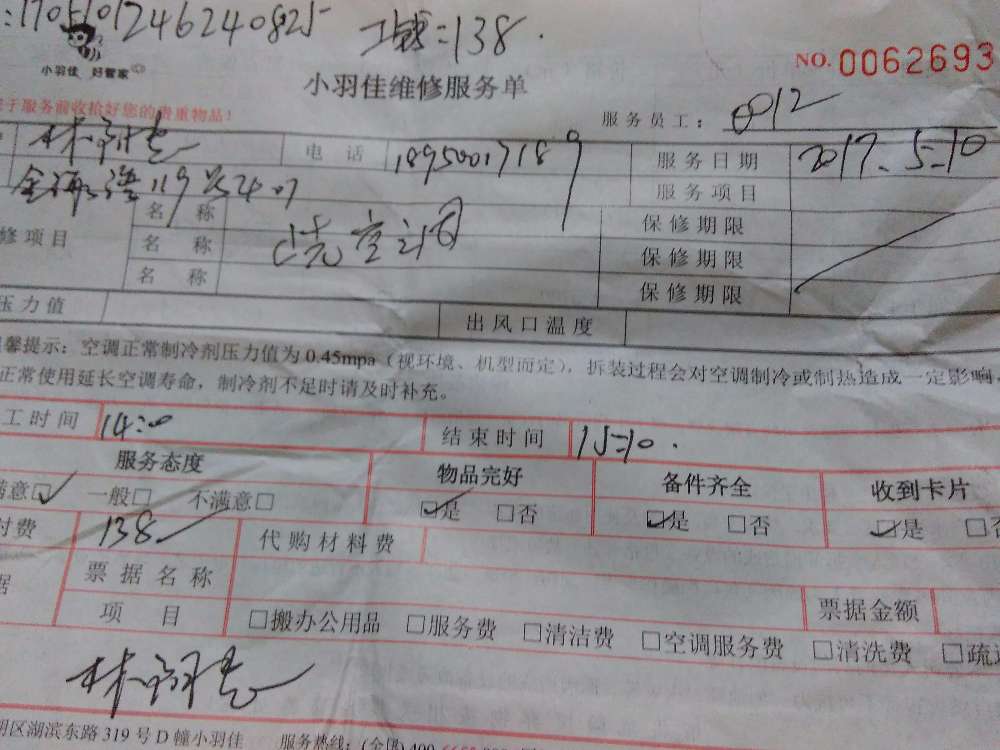 :1705101246240825 工钱:138.
小羽佳 好管家
NO. 0062693
小羽佳维修服务单
于服务前收拾好您的贵重物品!
服务员工: 0012
电话 18950017189 服务日期 2017.5.10
119号2407 服务项目
名称 保修期限
修项目 名称 洗空调 保修期限
名称 保修期限
压力值 出风口温度
馨提示: 空调正常制冷剂压力值为0.45mpa(视环境、机型而定), 拆装过程会对空调制冷或制热造成一定影响,
正常使用延长空调寿命, 制冷剂不足时请及时补充。
工时间 14:00 结束时间 15:10.
服务态度 物品完好 备件齐全 收到卡片
满意☑ 一般□ 不满意□ ☑是 □否 ☑是 □否 ☑是 □否
付费 138 代购材料费
据 票据名称 票据金额
项目 □搬办公用品 □服务费 □清洁费 □空调服务费 □清洗费 □疏通
明区湖滨东路319号D幢小羽佳 服务热线: (全国) 400